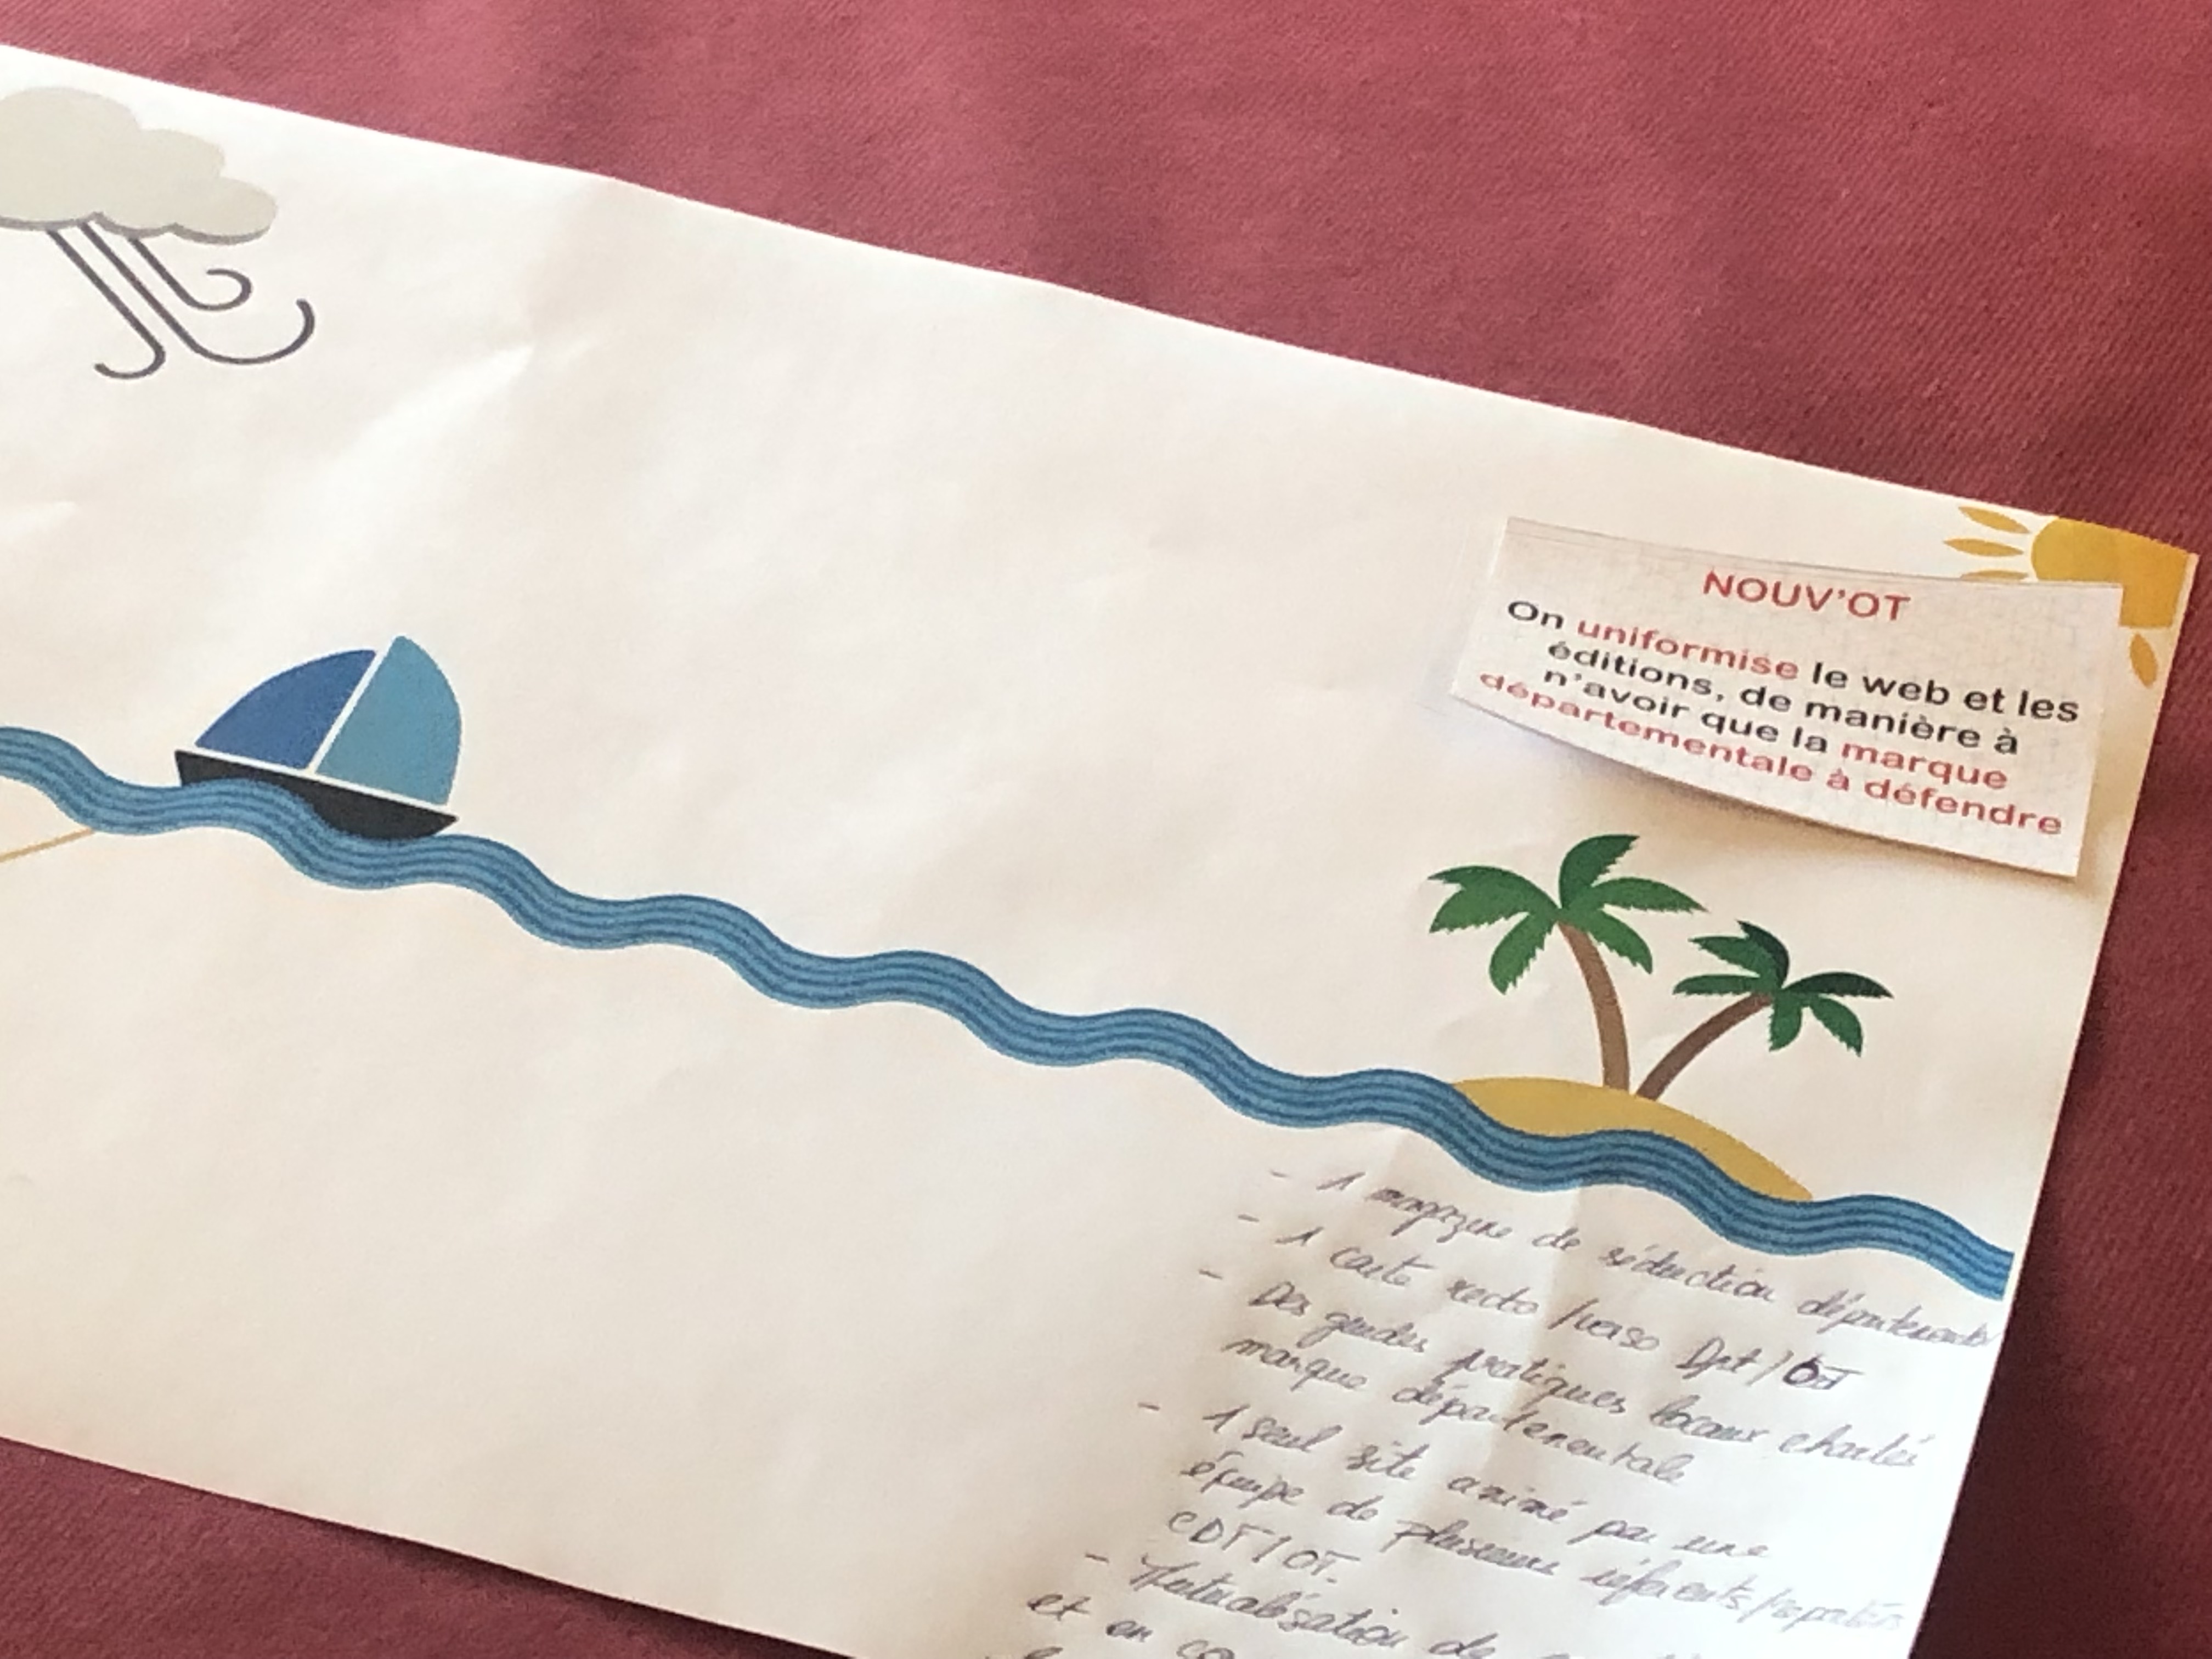 NOUV'OT
On uniformise le web et les
éditions, de manière à
n'avoir que la marque
départementale à défendre
- 1 magazine de séduction
- 1 carte recto/verso Dpt/OT
- Des guides pratiques locaux chartés
marque départementale
- 1 seul site animé par une
équipe de plusieurs référents/
CDT/OT.
- Mutualisation de
et en